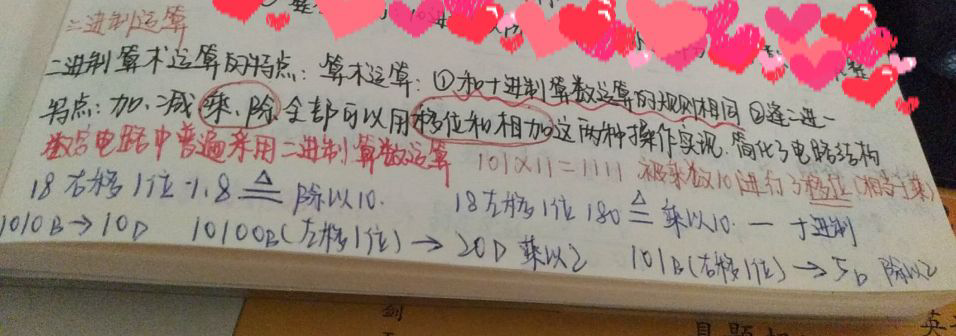 二进制运算
二进制算术运算的特点：算术运算：①和十进制算数运算的规则相同 ②逢二进一
特点：加、减 乘、除 全部可以用移位和相加这两种操作实现. 简化了电路结构
数字电路中普遍采用二进制算数运算 101×11=1111 被乘数10进行了移位（相当于乘）
18右移1位 1.8 ≜ 除以10. 18左移1位 180 ≜ 乘以10. — 十进制
1010B→10D 10100B(左移1位)→20D 乘以2 101B(右移1位)→5D 除以2